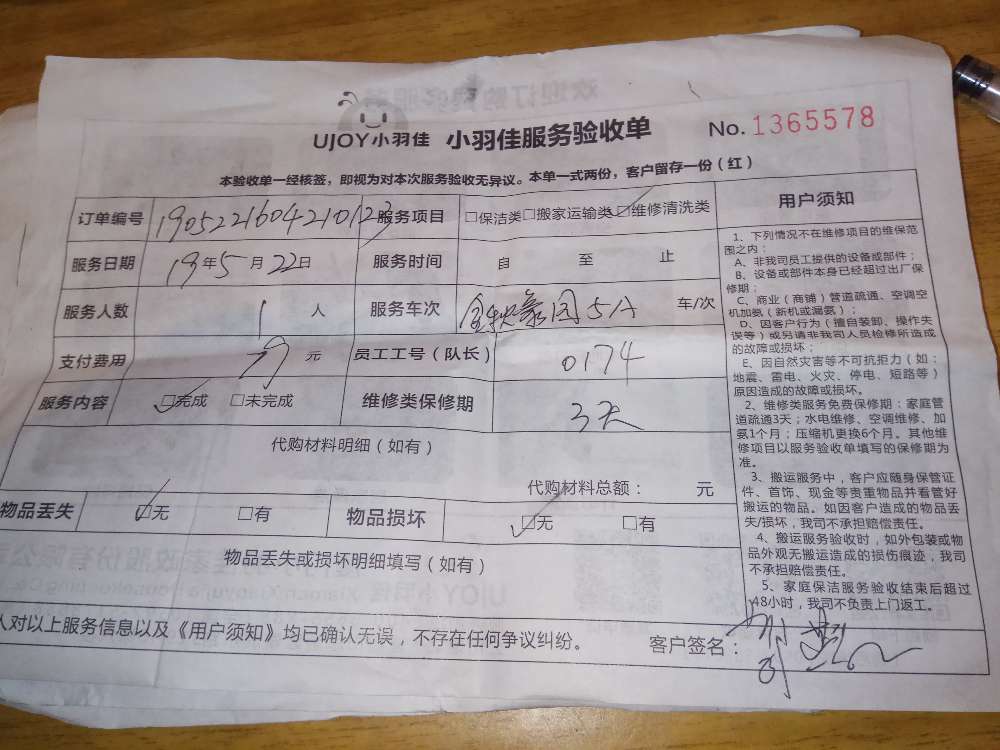 UJOY小羽佳 小羽佳服务验收单 No. 1365578
本验收单一经核签，即视为对本次服务验收无异议。本单一式两份，客户留存一份（红）
订单编号 1905221604210123 服务项目 □保洁类□搬家运输类☑维修清洗类
服务日期 19年5月22日 服务时间 自 至 止
服务人数 1 人 服务车次 5A 车/次
支付费用 元 员工工号（队长） 0174
服务内容 ☑完成 □未完成 维修类保修期 3天
代购材料明细（如有）
代购材料总额： 元
物品丢失 ☑无 □有 物品损坏 ☑无 □有
物品丢失或损坏明细填写（如有）
人对以上服务信息以及《用户须知》均已确认无误，不存在任何争议纠纷。 客户签名：
用户须知
1、下列情况不在维修项目的维保范
围之内：
A、非我司员工提供的设备或部件；
B、设备或部件本身已经超过出厂保
修期；
C、商业（商铺）管道疏通、空调空
机加氨（新机或漏氨）；
D、因客户行为（擅自装卸、操作失
误等）或另请非我司人员检修所造成
的故障或损坏；
E、因自然灾害等不可抗拒力（如：
地震、雷电、火灾、停电、短路等）
原因造成的故障或损坏。
2、维修类服务免费保修期：家庭管
道疏通3天；水电维修、空调维修、加
氨1个月；压缩机更换6个月。其他维
修项目以服务验收单填写的保修期为
准。
3、搬运服务中，客户应随身保管证
件、首饰、现金等贵重物品并看管好
搬运的物品。如因客户造成的物品丢
失/损坏，我司不承担赔偿责任。
4、搬运服务验收时，如外包装或物
品外观无搬运造成的损伤痕迹，我司
不承担赔偿责任。
5、家庭保洁服务验收结束后超过
48小时，我司不负责上门返工。